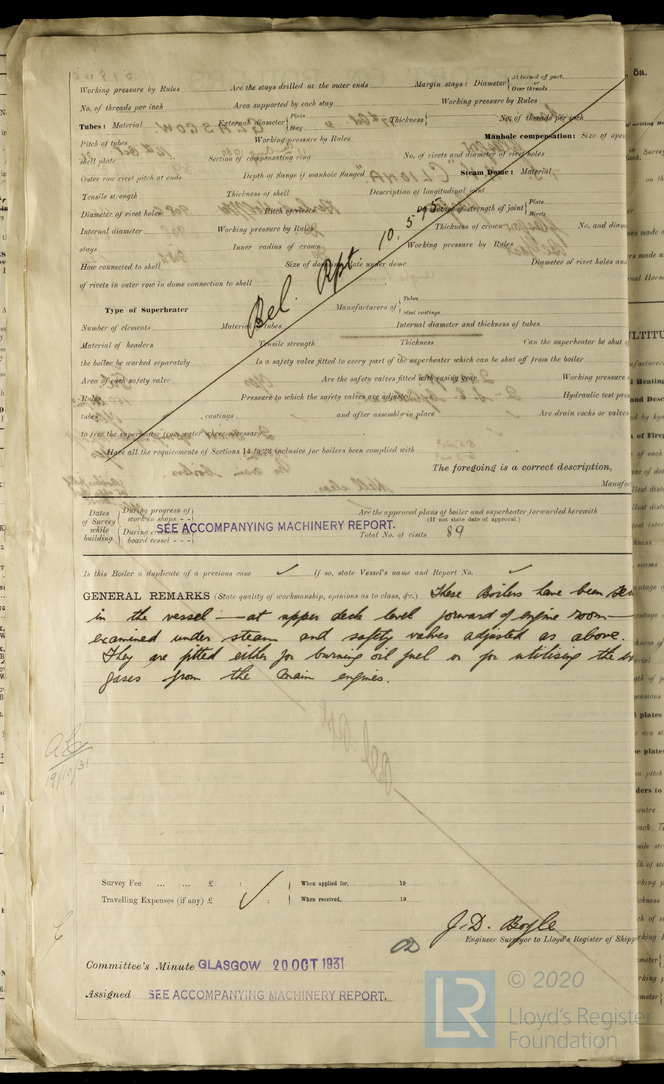 5a.
Working pressure by Rules Are the stays drilled at the outer ends Margin stays: Diameter { At turned off part, or Over threads
No. of threads per inch Area supported by each stay Working pressure by Rules
Tubes: Material External diameter { Plain Stay Thickness { No. of threads per inch
Pitch of tubes Working pressure by Rules Manhole compensation: Size of
shell plate Section of compensating ring No. of rivets and diameter of rivet holes
Outer row rivet pitch at ends Depth of flange if manhole flanged Steam Dome: Material
Tensile strength Thickness of shell Description of longitudinal joint
Diameter of rivet holes Pitch of rivets of strength of joint { Plate Rivets
Internal diameter Working pressure by Rules Thickness of crown No. and
stays Inner radius of crown Working pressure by Rules
How connected to shell Size of under dome Diameter of rivet holes and
of rivets in outer row in dome connection to shell
Bel. Rpt. 10.5.15
Type of Superheater Manufacturers of { Tubes Steel castings
Number of elements Material of tubes Internal diameter and thickness of tubes
Material of headers Tensile strength Thickness Can the superheater be shut
the boiler be worked separately Is a safety valve fitted to every part of the superheater which can be shut off from the boiler
Area of each safety valve Are the safety valves fitted with easing gear Working pressure
Rules Pressure to which the safety valves are adjusted Hydraulic test
tubes , castings and after assembly in place Are drain cocks or valves
to free the superheater from water where necessary
Have all the requirements of Sections 14 to 22 inclusive for boilers been complied with
The foregoing is a correct description,
Dates of Survey while building { During progress of work in shops - - During on board vessel - - -
SEE ACCOMPANYING MACHINERY REPORT.
Are the approved plans of boiler and superheater forwarded herewith
(If not state date of approval.)
Total No. of visits 89
Is this Boiler a duplicate of a previous case ✓ If so, state Vessel's name and Report No. ✓
GENERAL REMARKS (State quality of workmanship, opinions as to class, &c.) These Boilers have been
in the vessel — at upper deck level forward of engine room —
examined under steam and safety valves adjusted as above.
They are fitted either for burning oil fuel or for utilising the
gases from the main engines.
19/10/31
Survey Fee ... ... £ : : When applied for, 19
Travelling Expenses (if any) £ : : When received, 19
J. D. Boyle
Engineer Surveyor to Lloyd's Register of
Committee's Minute GLASGOW 20 OCT 1931
Assigned SEE ACCOMPANYING MACHINERY REPORT.
LR
© 2020
Lloyd's Register
Foundation